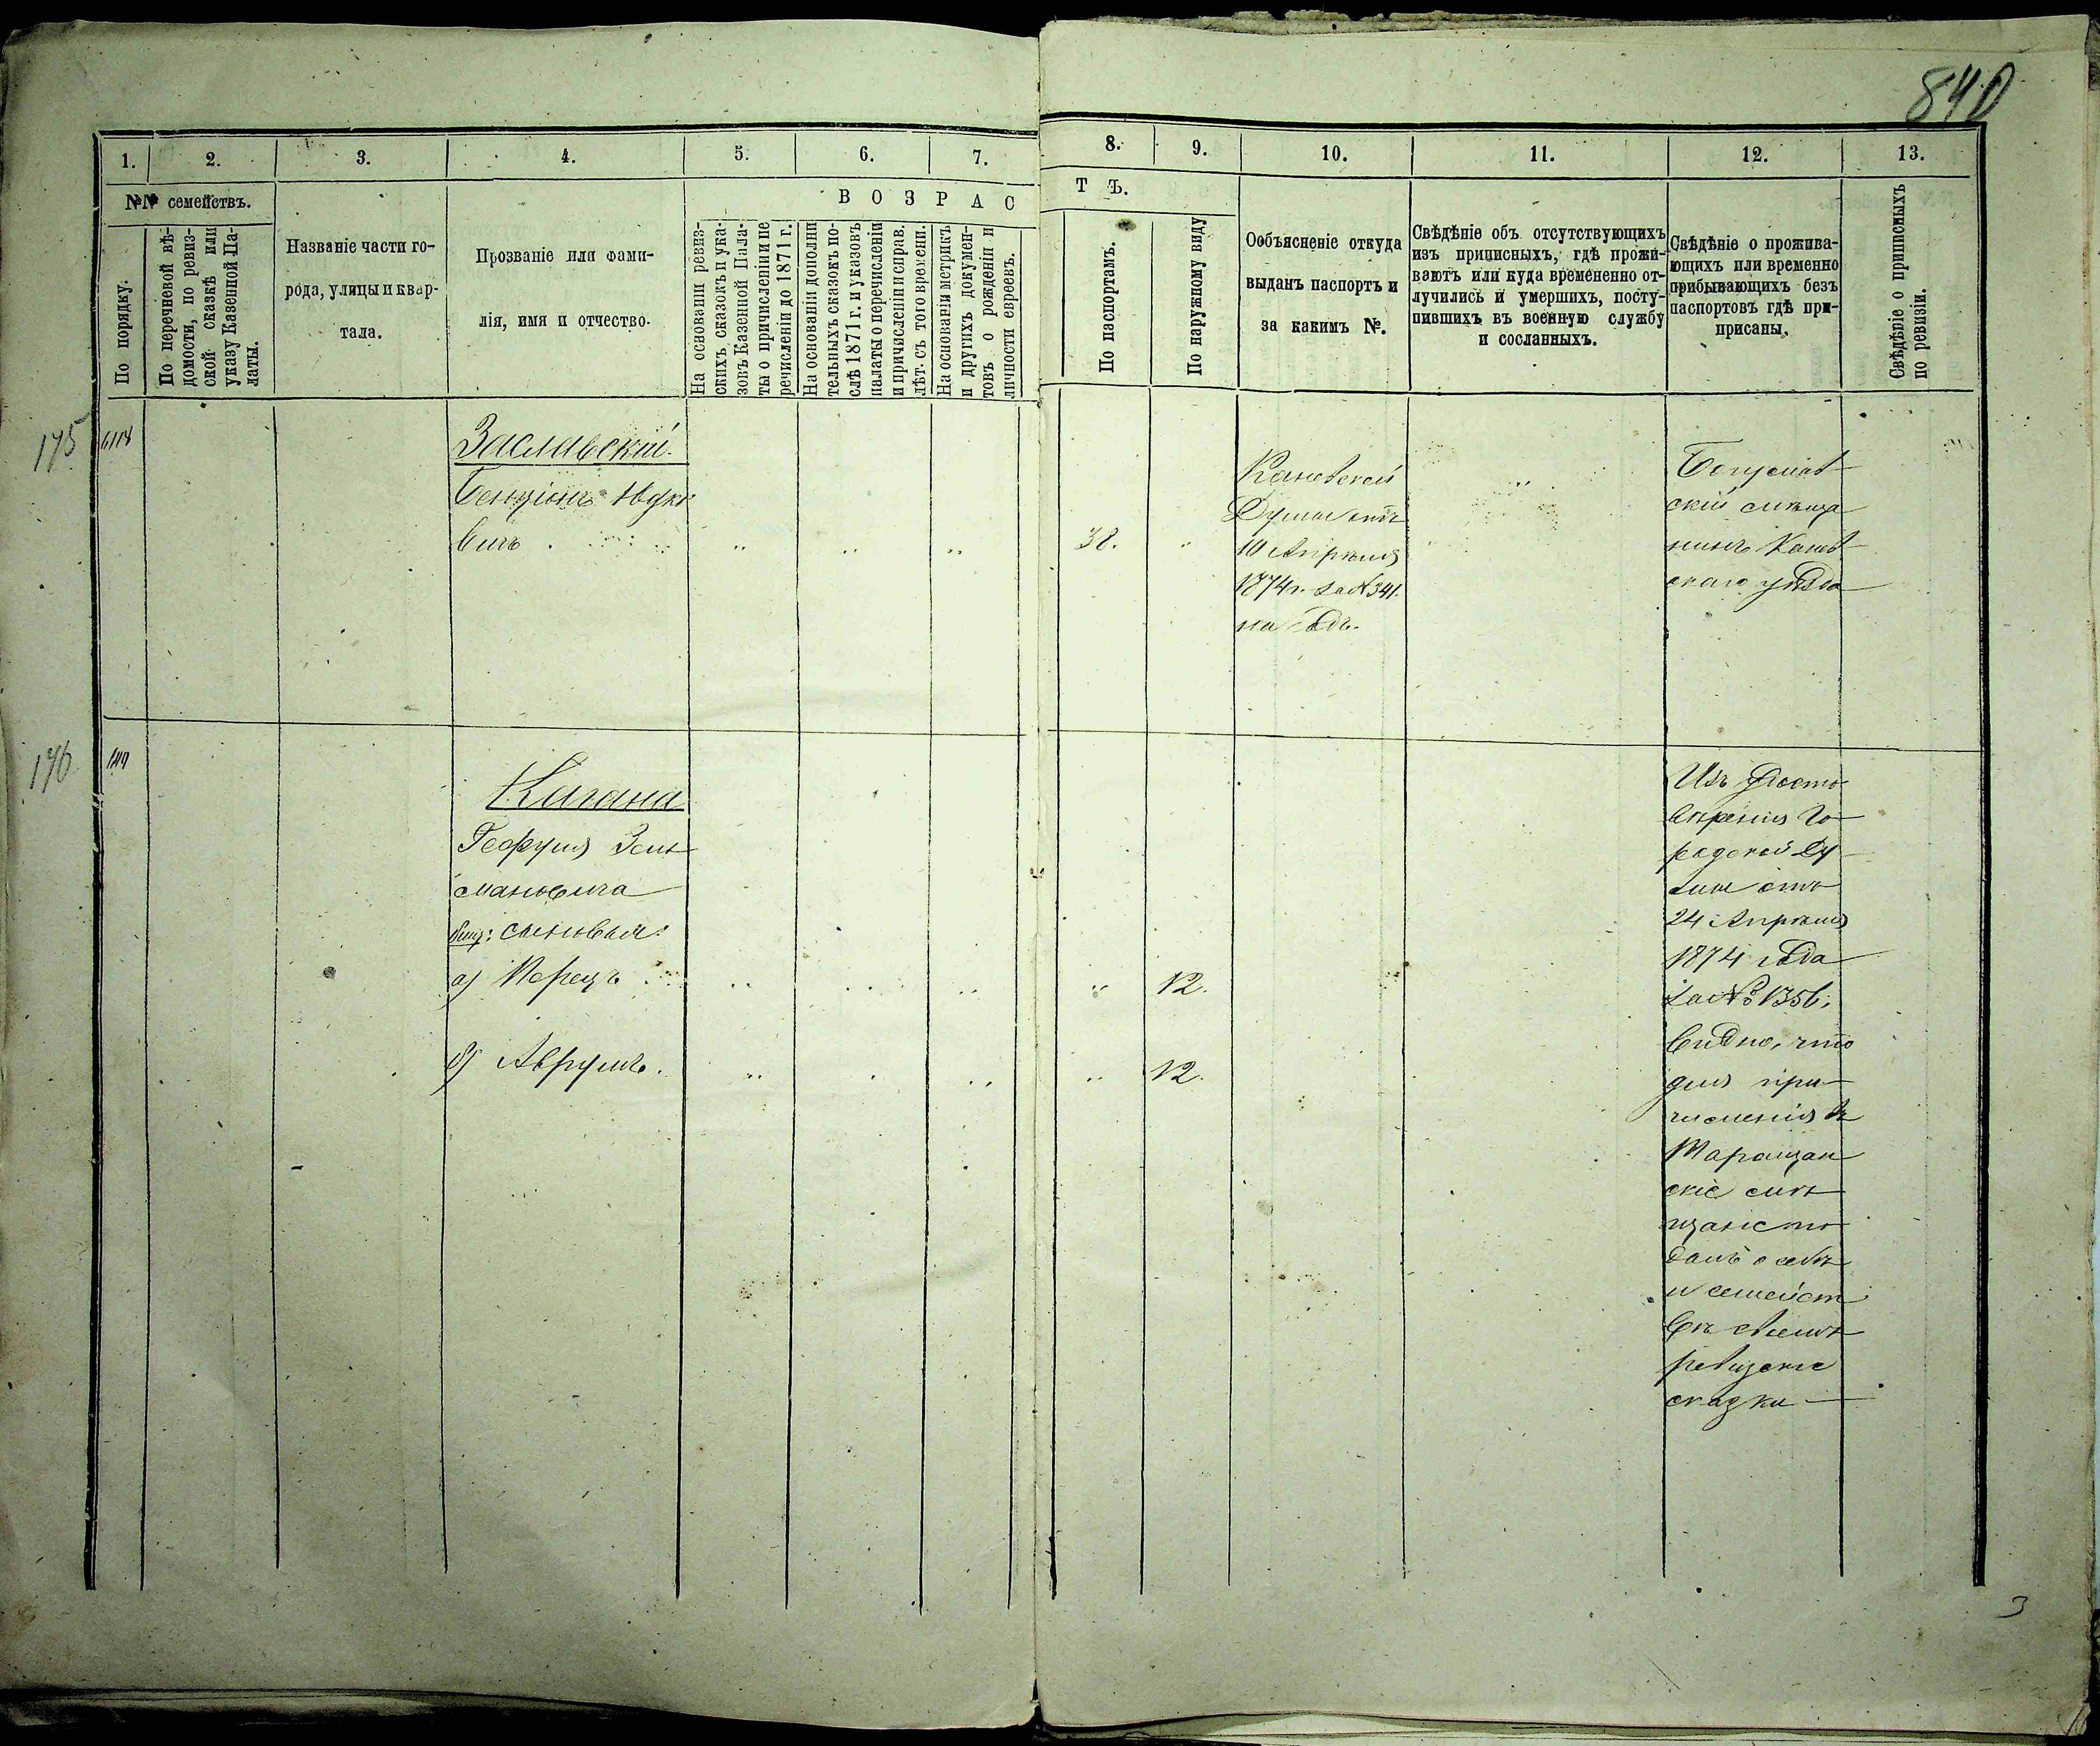 840
1. 2. 3. 4. 5. 6. 7. 8. 9. 10. 11. 12. 13.
№№ семействъ.
В О З Р А С Т Ъ.
По порядку.
По перечневой вѣ-
домости, по ревиз-
ской сказкѣ или
указу Казенной Па-
латы.
Названіе части го-
рода, улицы и квар-
тала.
Прозваніе или фами-
лія, имя и отчество.
На основаніи ревиз-
скихъ сказокъ и ука-
зовъ Казенной Пала-
ты о причисленіи и пе
речисленіи до 1871 г.
На основаніи дополни
тельныхъ сказокъ по-
слѣ 1871 г. и указовъ
палаты о перечисленіи
и причисленіи и справ.
лѣт. съ того времени.
На основаніи метрикъ
и другихъ докумен-
товъ о рожденіи и
личности евреевъ.
По паспортамъ.
По наружному виду
Ообъясненіе откуда
выданъ паспортъ и
за какимъ №.
Свѣдѣніе объ отсутствующихъ
изъ приписныхъ, гдѣ прожи-
ваютъ или куда времененно от-
лучились и умершихъ, посту-
пившихъ въ военную службу
и сосланныхъ.
Свѣдѣніе о прожива-
ющихъ или временно
прибывающихъ безъ
паспортовъ гдѣ при-
присаны.
Свѣдѣніе о приписныхъ
по ревизіи.
175
Заславскій.
Бенціонъ
вичъ
38.
Каневской
Думы отъ
10 Апрѣля
1874 г. за № 341.
на годъ.
Богуслав
скій мѣща
нинъ Канев
скаго уѣзда
176
Кагана
Геофуля Зель
мановича
сыновья:
а) Перецъ
12.
б) Аврумъ.
12.
Изъ удосто
вѣренія Го
родской Ду
мы отъ
24 Апрѣля
1874 года
за № 1356,
видно, что
для при
численія въ
Таращан
скіе мѣ
щане по
далъ о себѣ
и семейст
вѣ своемъ
ревизскіе
сказки
3